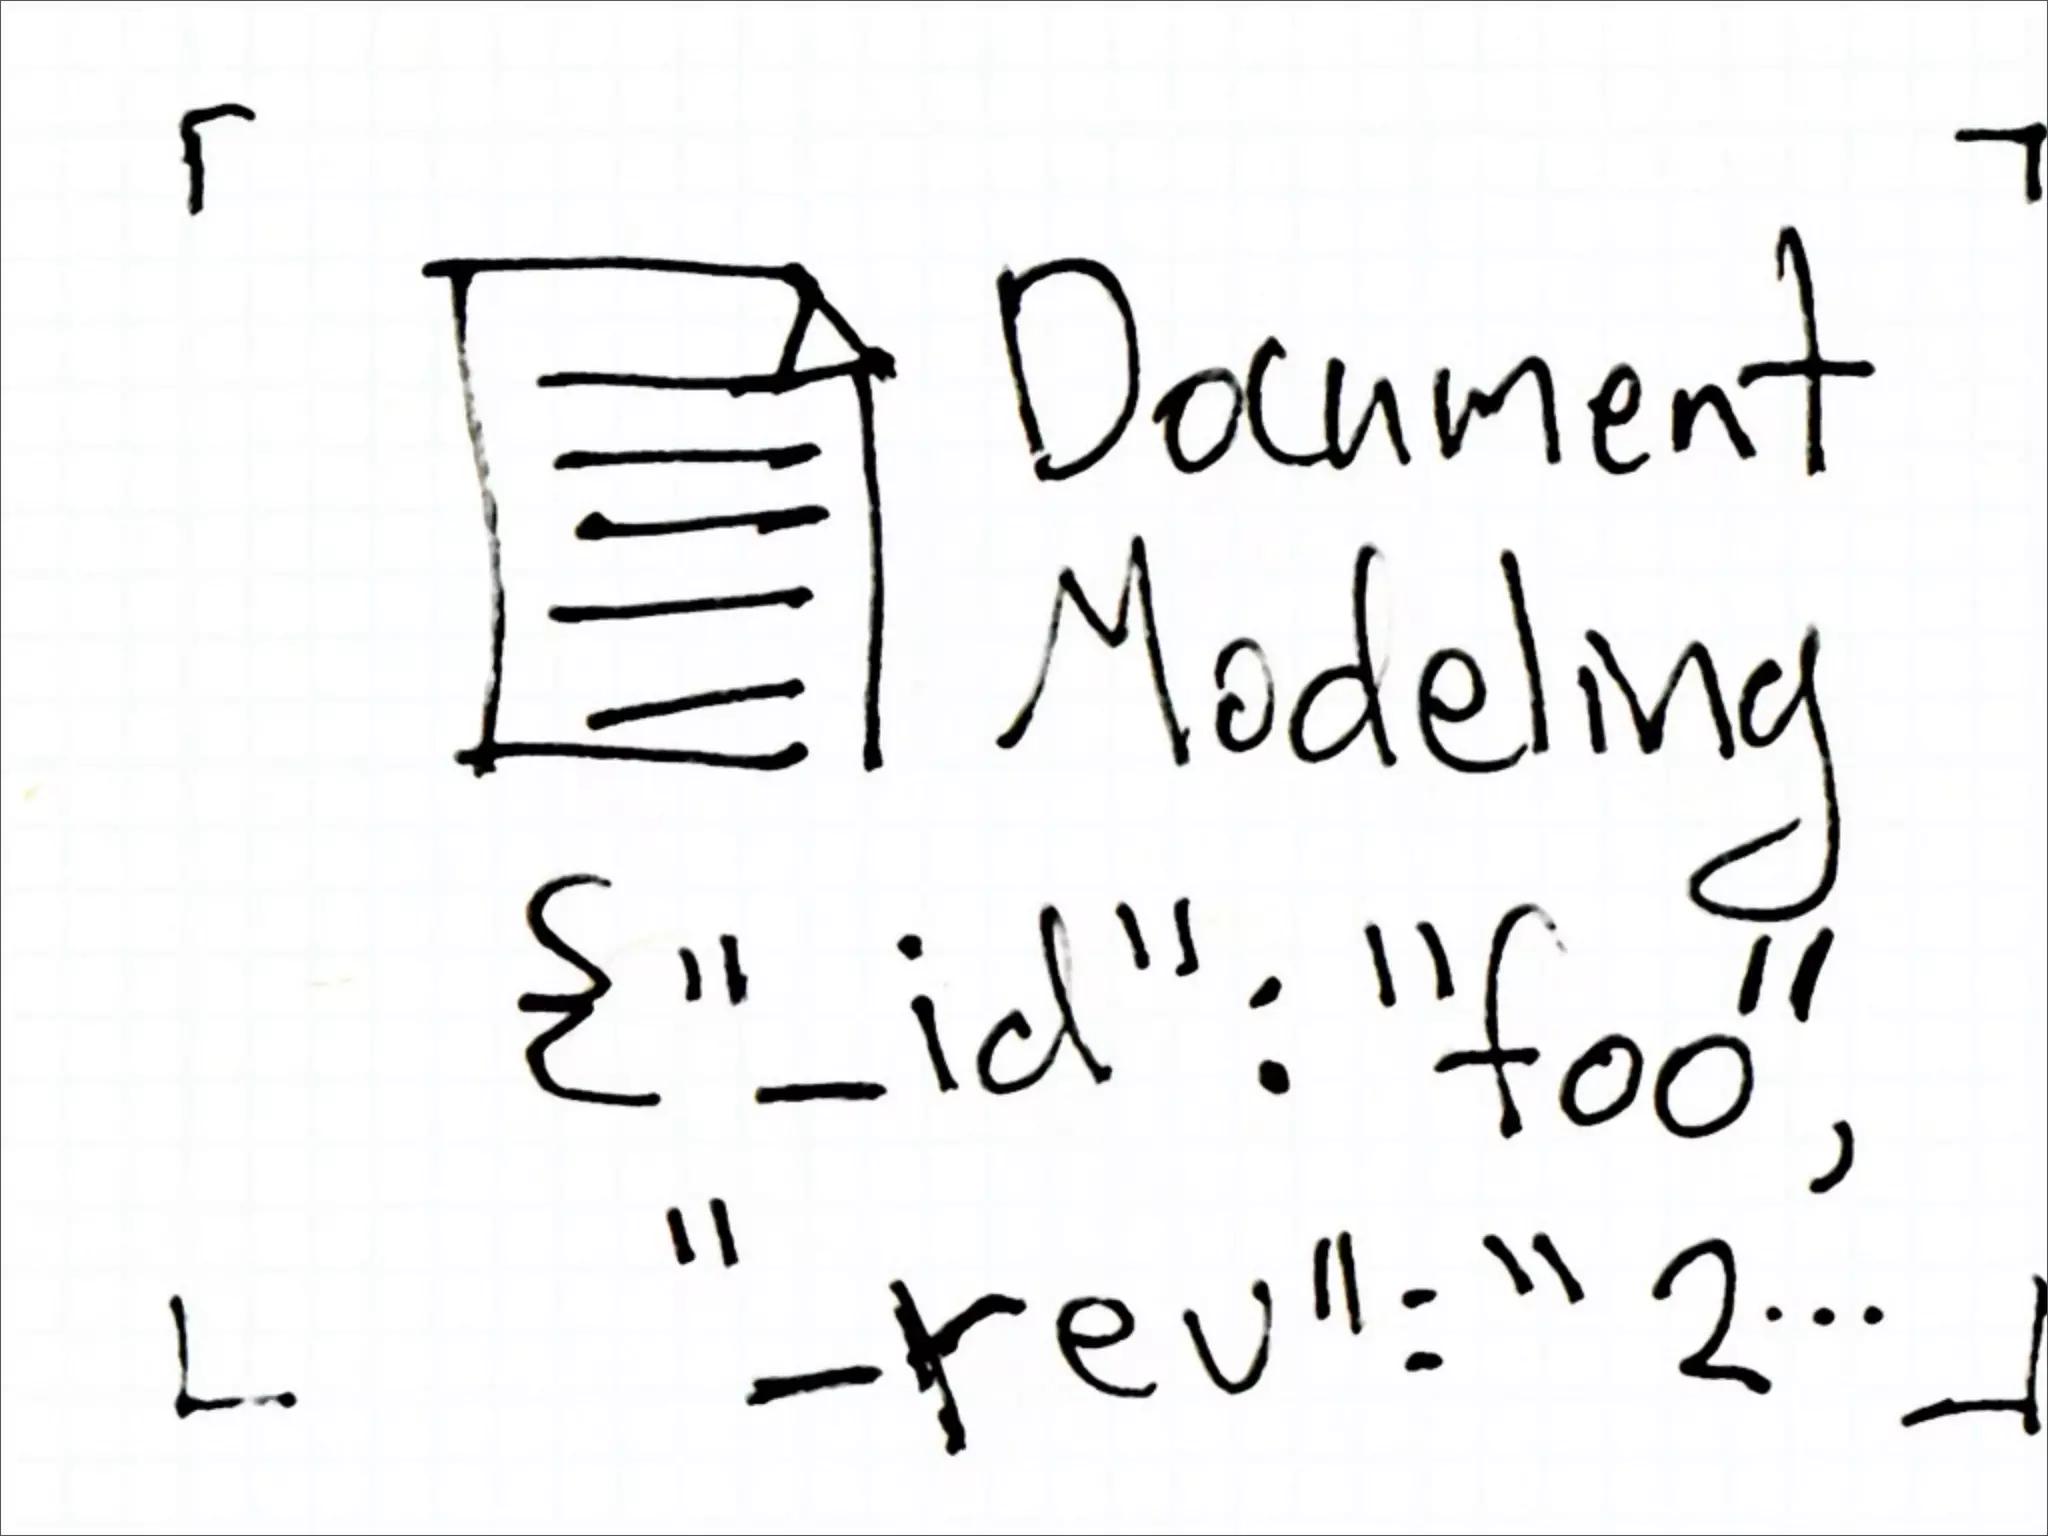 Document
Modeling
{"_id": "foo",
"_rev": "2...